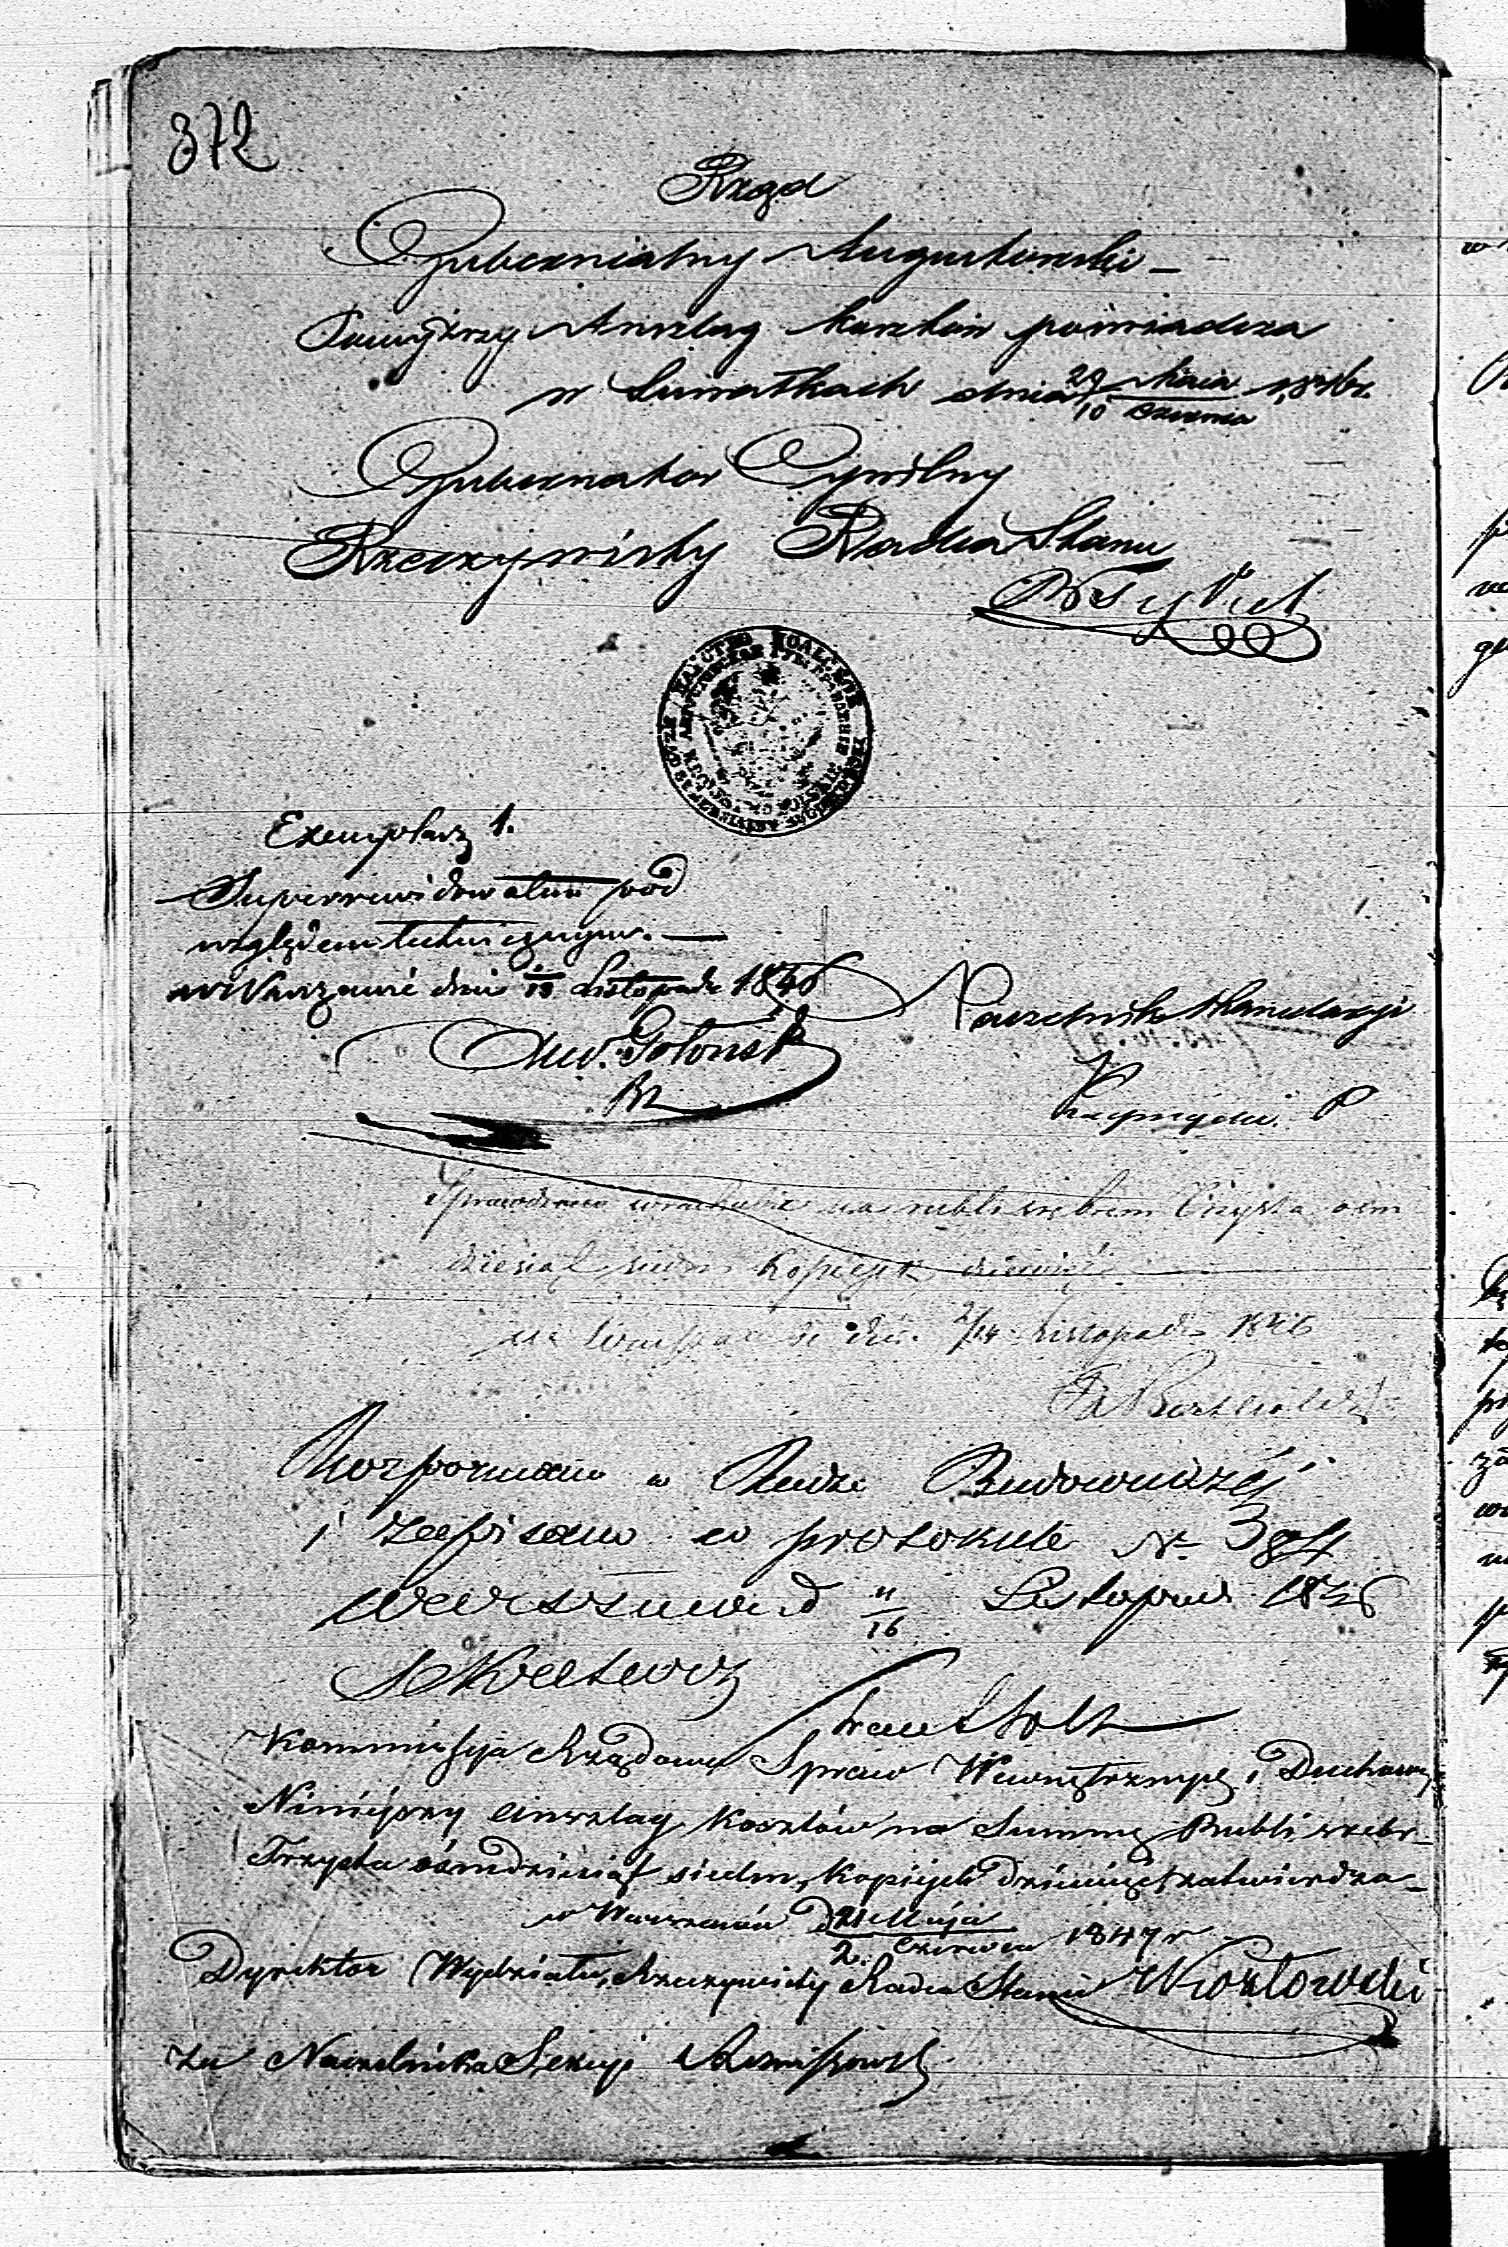 372
Rząd
Gubernialny Augustowski –
Powyższy Anszlag kosztów poświadcza
w Suwałkach dnia 29 Maia 1846 r.
10 Czerwca
Gubernator Cywilny
Rzeczywisty Radca Stanu
Exemplarz 1.
Superrewidowałem pod
względem technicznym. —
w Warszawie dnia 18 Listopada 1846
Naczelnik Kancelaryi
And. Gołoński
Sprawdzono w rachunku na rubli srebrem Trzysta ośm
dziesiąt siedm kopiejek dziewięć
w Warszawie dn. 2/14 Listopada 1846
Rozpoznano w Radzie Budowniczéj
i zapisano w protokule N 384
Warszawa d 4/16 Listopada 1846
Sekretarz
Kommissyja Rządowa Spraw Wewnętrznych i Duchown.
Niniéjszy anszlag kosztów na Summę Rubli srebr.
Trzysta ośmdziesiąt siedm, kopiejek dziewięć zatwierdza –
w Warszawie d. 21 Maja 1847 r
2. Czerwca
Dyrektor Wydziału, Rzeczywisty Radca Stanu Kozłowski
za Naczelnika Sekcyi